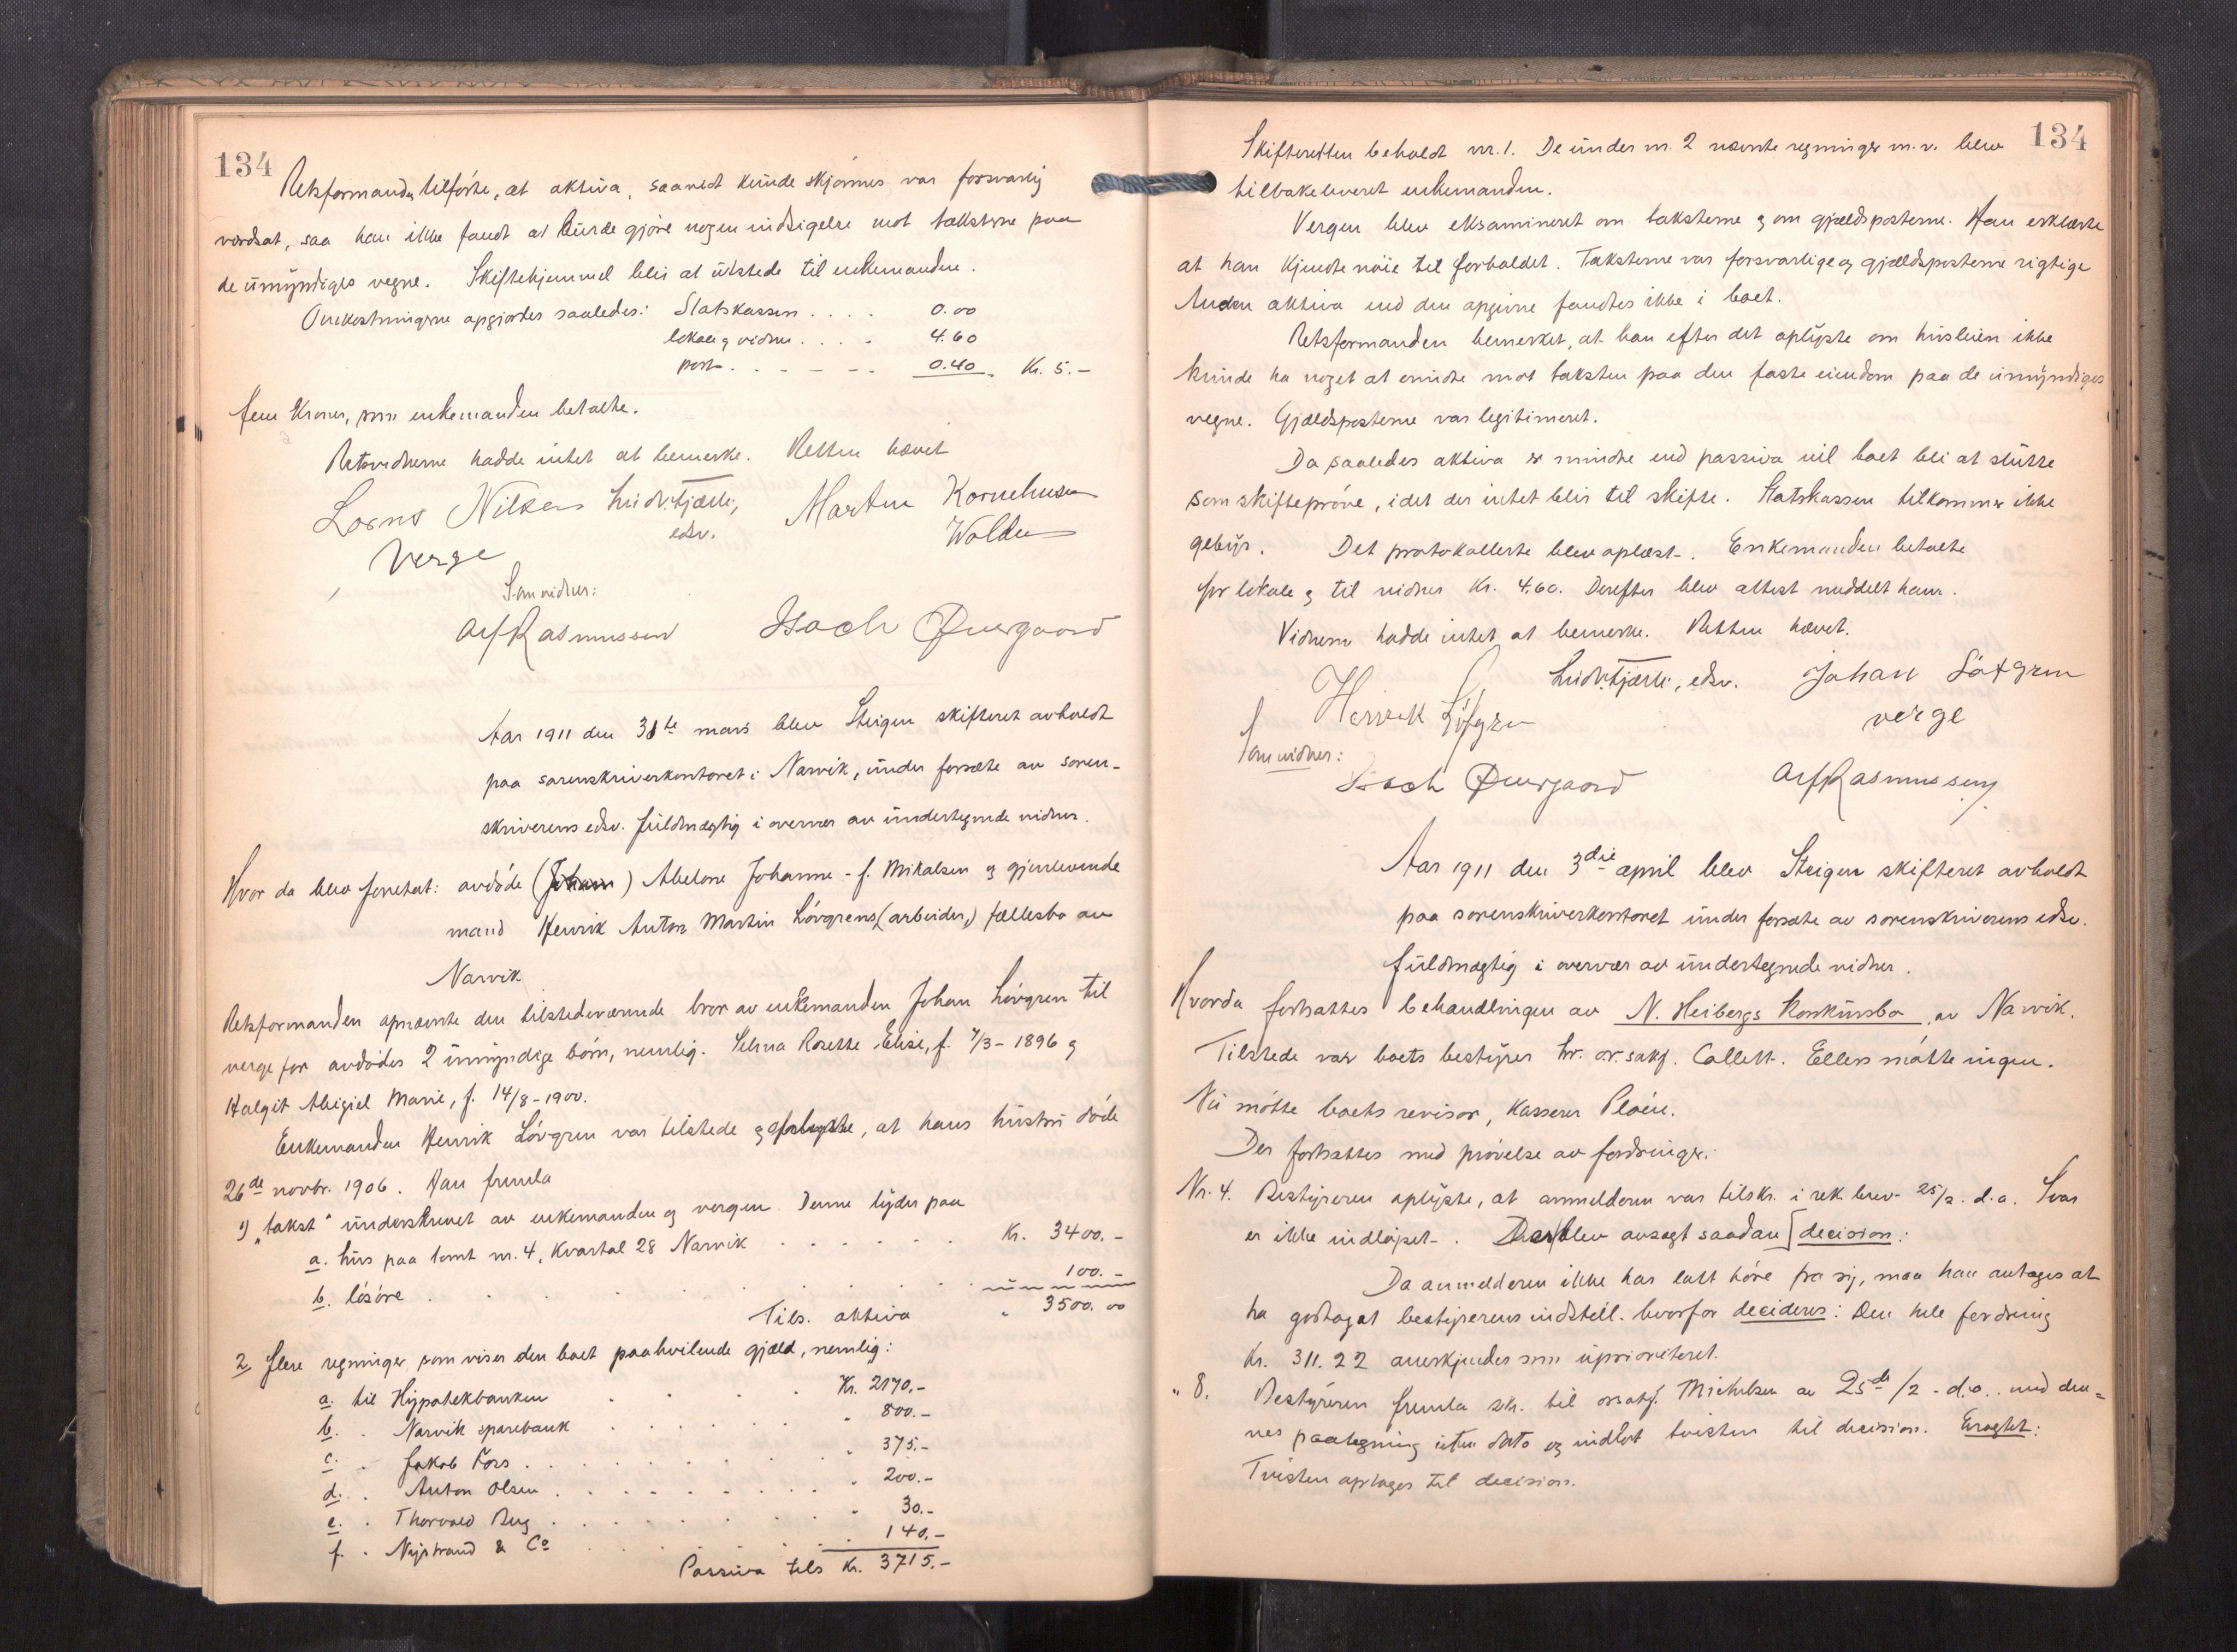 134
Retsformanden tilførte, at aktiva, saavidt kunde skjønnes var forsvarlig
verdsat, saa han ikke fandt at burde gjøre nogen indsigelse mot taksterne paa
de umyndiges vegne. Skiftehjemmel blir at utstede til enkemanden.
Omkostningerne opgjordes saaledes: Statskassen . . . . 0.00
lokale og vidner . . . . 4.60
porto . . . . . 0.40 Kr. 5.-
fem Kroner, som enkemanden betalte.
Retsvidnerne hadde intet at bemerke. Retten hævet
Lorns Nilsen Ludv. Fjærli, Martin Kornelius
edsv. Wolden
Verge
Som vidner:
Alf Rasmussen Isach Øvergaard
Aar 1911 den 31te mars blev Steigen skifteret avholdt
paa sorenskriverkontoret i Narvik, under forsæte av soren-
skriverens edsv. fuldmægtig i overvær av undertegnede vidner.
Hvor da blev foretat: avdøde (Johan) Abelone Johanne - f. Mikalsen og gjenlevende
mand Henrik Anton Martin Løvgrens (arbeider,) fællesbo av
Narvik
Retsformanden opnævnte den tilstedeværende bror av enkemanden Johan Løvgren til
verge for avdødes 2 umyndige børn, nemlig. Selma Rosette Elise, f. 7/3 - 1896 og
Halgit Abigiel Marie, f. 14/8 - 1900.
Enkemanden Henrik Løvgren var tilstede og oplyste, at hans hustru døde
26de novbr. 1906. Han fremla
1) "takst" underskrevet av enkemanden og vergen. Denne lyder paa
a. hus paa tomt nr. 4, Kvartal 28 Narvik . . . . . . Kr. 3400.-
b. løsøre . . . . . . . . 100.-
Tils. aktiva " 3500.00
2, flere regninger som viser den boet paahvilende gjæld, nemlig:
a. til Hypotekbanken . . . . Kr. 2170.-
b. " Narvik sparebank . . . . . " 800.-
c. " Jakob Fors . . . . . . " 375.-
d. " Anton Olsen . . . . . . " 200.-
e. " Thorvald Bug . . . . . . " 30.-
f. " Nystrand & Co . . . . . . 140.-
Passiva tils Kr. 3715.-
134
Skifteretten beholdt nr. 1. De under nr. 2 nævnte regninger m. v. blev
tilbakeleveret enkemanden.
Vergen blev eksamineret om taksterne og om gjældsposterne. Han erklærte
at han kjendte nøie til forholdet. Taksterne var forsvarlige og gjældsposterne rigtige
Anden aktiva end den opgivne fandtes ikke i boet.
Retsformanden bemerket, at han efter det oplyste om husleien ikke
kunde ha noget at erindre mot taksten paa den faste eiendom paa de umyndiges
vegne. Gjældsposterne var legitimeret.
Da saaledes aktiva er mindre end passiva vil boet bli at slutte
som skifteprøve, idet der intet blir til skifte. Statskassen tilkommer ikke
gebyr. Det protokollerte blev oplæst. Enkemanden betalte
for lokale og til vidner Kr. 4.60. Derefter blev attest meddelt ham.
Vidnerne hadde intet at bemerke. Retten hævet.
Ludv. Fjærli, edsv. Johan Løfgren
Henrik Løfgren verge
Som vidner:
Isach Øvergaard Alf Rasmussen
Aar 1911 den 3die april blev Steigen skifteret avholdt
paa sorenskriverkontoret under forsæte av sorenskriverens edsv.
fuldmægtig i overvær av undertegnede vidner.
Hvorda fortsattes behandlingen av N. Heibergs konkursbo, av Narvik.
Tilstede var boets bestyrer hr. or. sakf. Collett. Ellers møtte ingen.
Nu møtte boets revisor, kasserer Ploén.
Der fortsattes med prøvelse av fordringer:
Nr. 4. Bestyreren oplyste, at anmelderen var tilskr. i rek. brev 25/2. d. a. Svar
er ikke indløpet. Der blev avsagt saadan decision:
Da anmelderen ikke har latt høre fra sig, maa han antages at
ha godtagat bestyrerens indstill. hvorfor decideres: Den hele fordring
Kr. 311.22 anerkjendes som uprioriteret.
" 8. Bestyreren fremla skr. til orsakf. Michelsen av 25de/2 - d. a. med den-
nes paategning uten dato og indlot tvisten til decision. Eragtet:
Tvisten optages til decision.